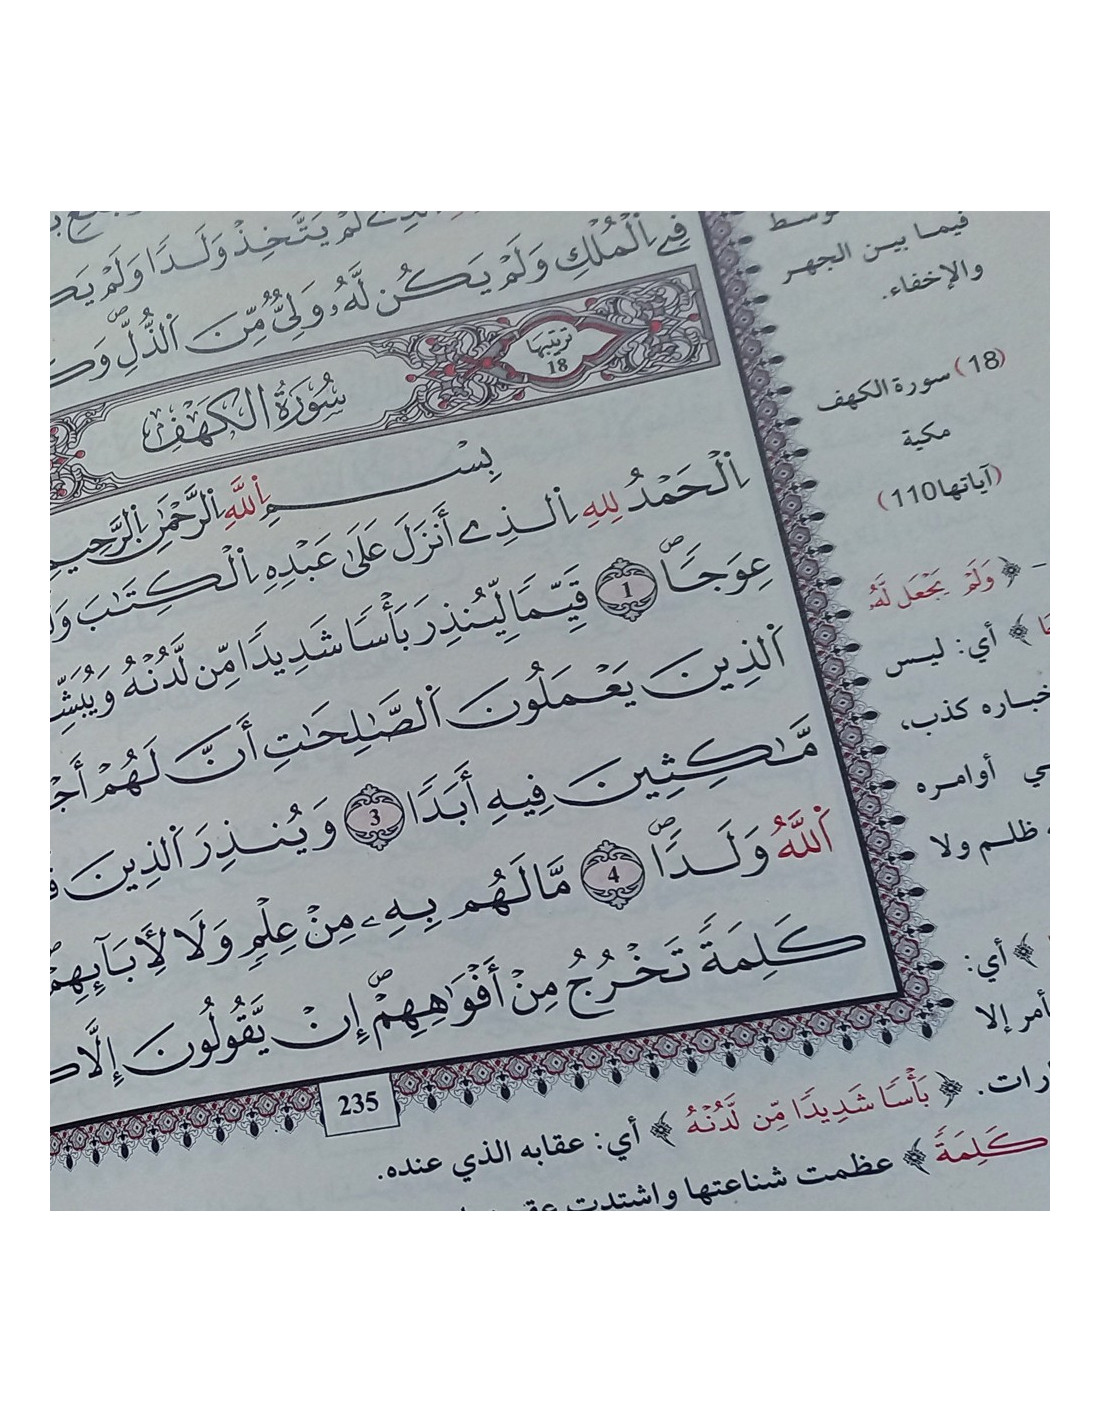 فِي اِلْمُلْكِ وَلَمْ يَكُن لَّهُۥ وَلِيٌّ مِّنَ اَلذُّلِّ
لَمْ يَتَّخِذْ وَلَدًا وَلَمْ
ترتيبها
18
سُورَةُ الكَهْفِ
بِسْمِ اِللَّهِ اِلرَّحْمَٰنِ اِلرَّحِيمِ
اِلْحَمْدُ لِلهِ اِلذِے أَنزَلَ عَلَىٰ عَبْدِهِ اِلْكِتَٰبَ
عِوَجَاۖ 1 قَيِّمَا لِّيُنذِرَ بَأْسَا شَدِيدًا مِّن لَّدُنْهُ
اَلذِينَ يَعْمَلُونَ اَلصَّٰلِحَٰتِ أَنَّ لَهُمْ
مَّٰكِثِينَ فِيهِ أَبَدًا 3 وَيُنذِرَ اَلذِينَ
اَللَّهُ وَلَدًاۖ 4 مَّا لَهُم بِهِۦ مِنْ عِلْمٍ وَلَا لِأَبَآئِهِمْ
كَلِمَةً تَخْرُجُ مِنْ أَفْوَٰهِهِمْۖ إِنْ يَّقُولُونَ إِلَّا
235
فيما بين الجهر
والإخفاء.
(18) سورة الكهف
مكية
(آياتها 110)
- ﴿ وَلَمْ يَجْعَل لَّهُۥ
﴾ أي: ليس
كذب،
أوامره
ظلم ولا
﴾ أي:
إلا
﴿ بَأْسَا شَدِيدًا مِّن لَّدُنْهُ ﴾ أي: عقابه الذي عنده.
كَلِمَةً ﴾ عظمت شناعتها واشتدت